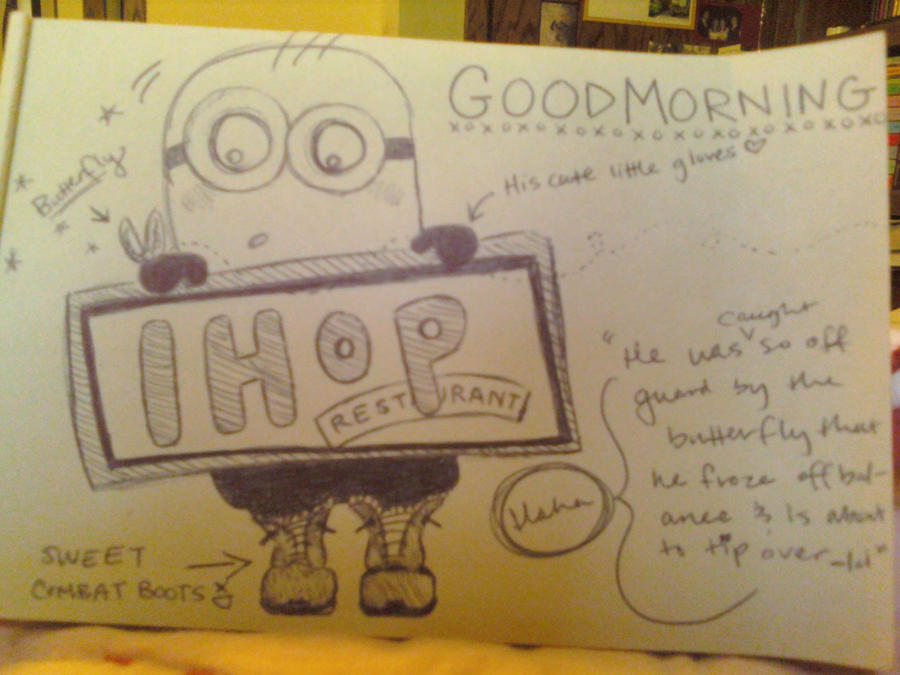 GOODMORNING
xoxoxoxoxoxoxoxoxoxoxox
Butterfly
His cute little gloves ♡
IHOP
RESTAURANT
caught
"He was ^ so off
guard by the
butterfly that
he froze off bal-
ance & is about
to tip over -lol"
Haha
SWEET
COMBAT BOOTS